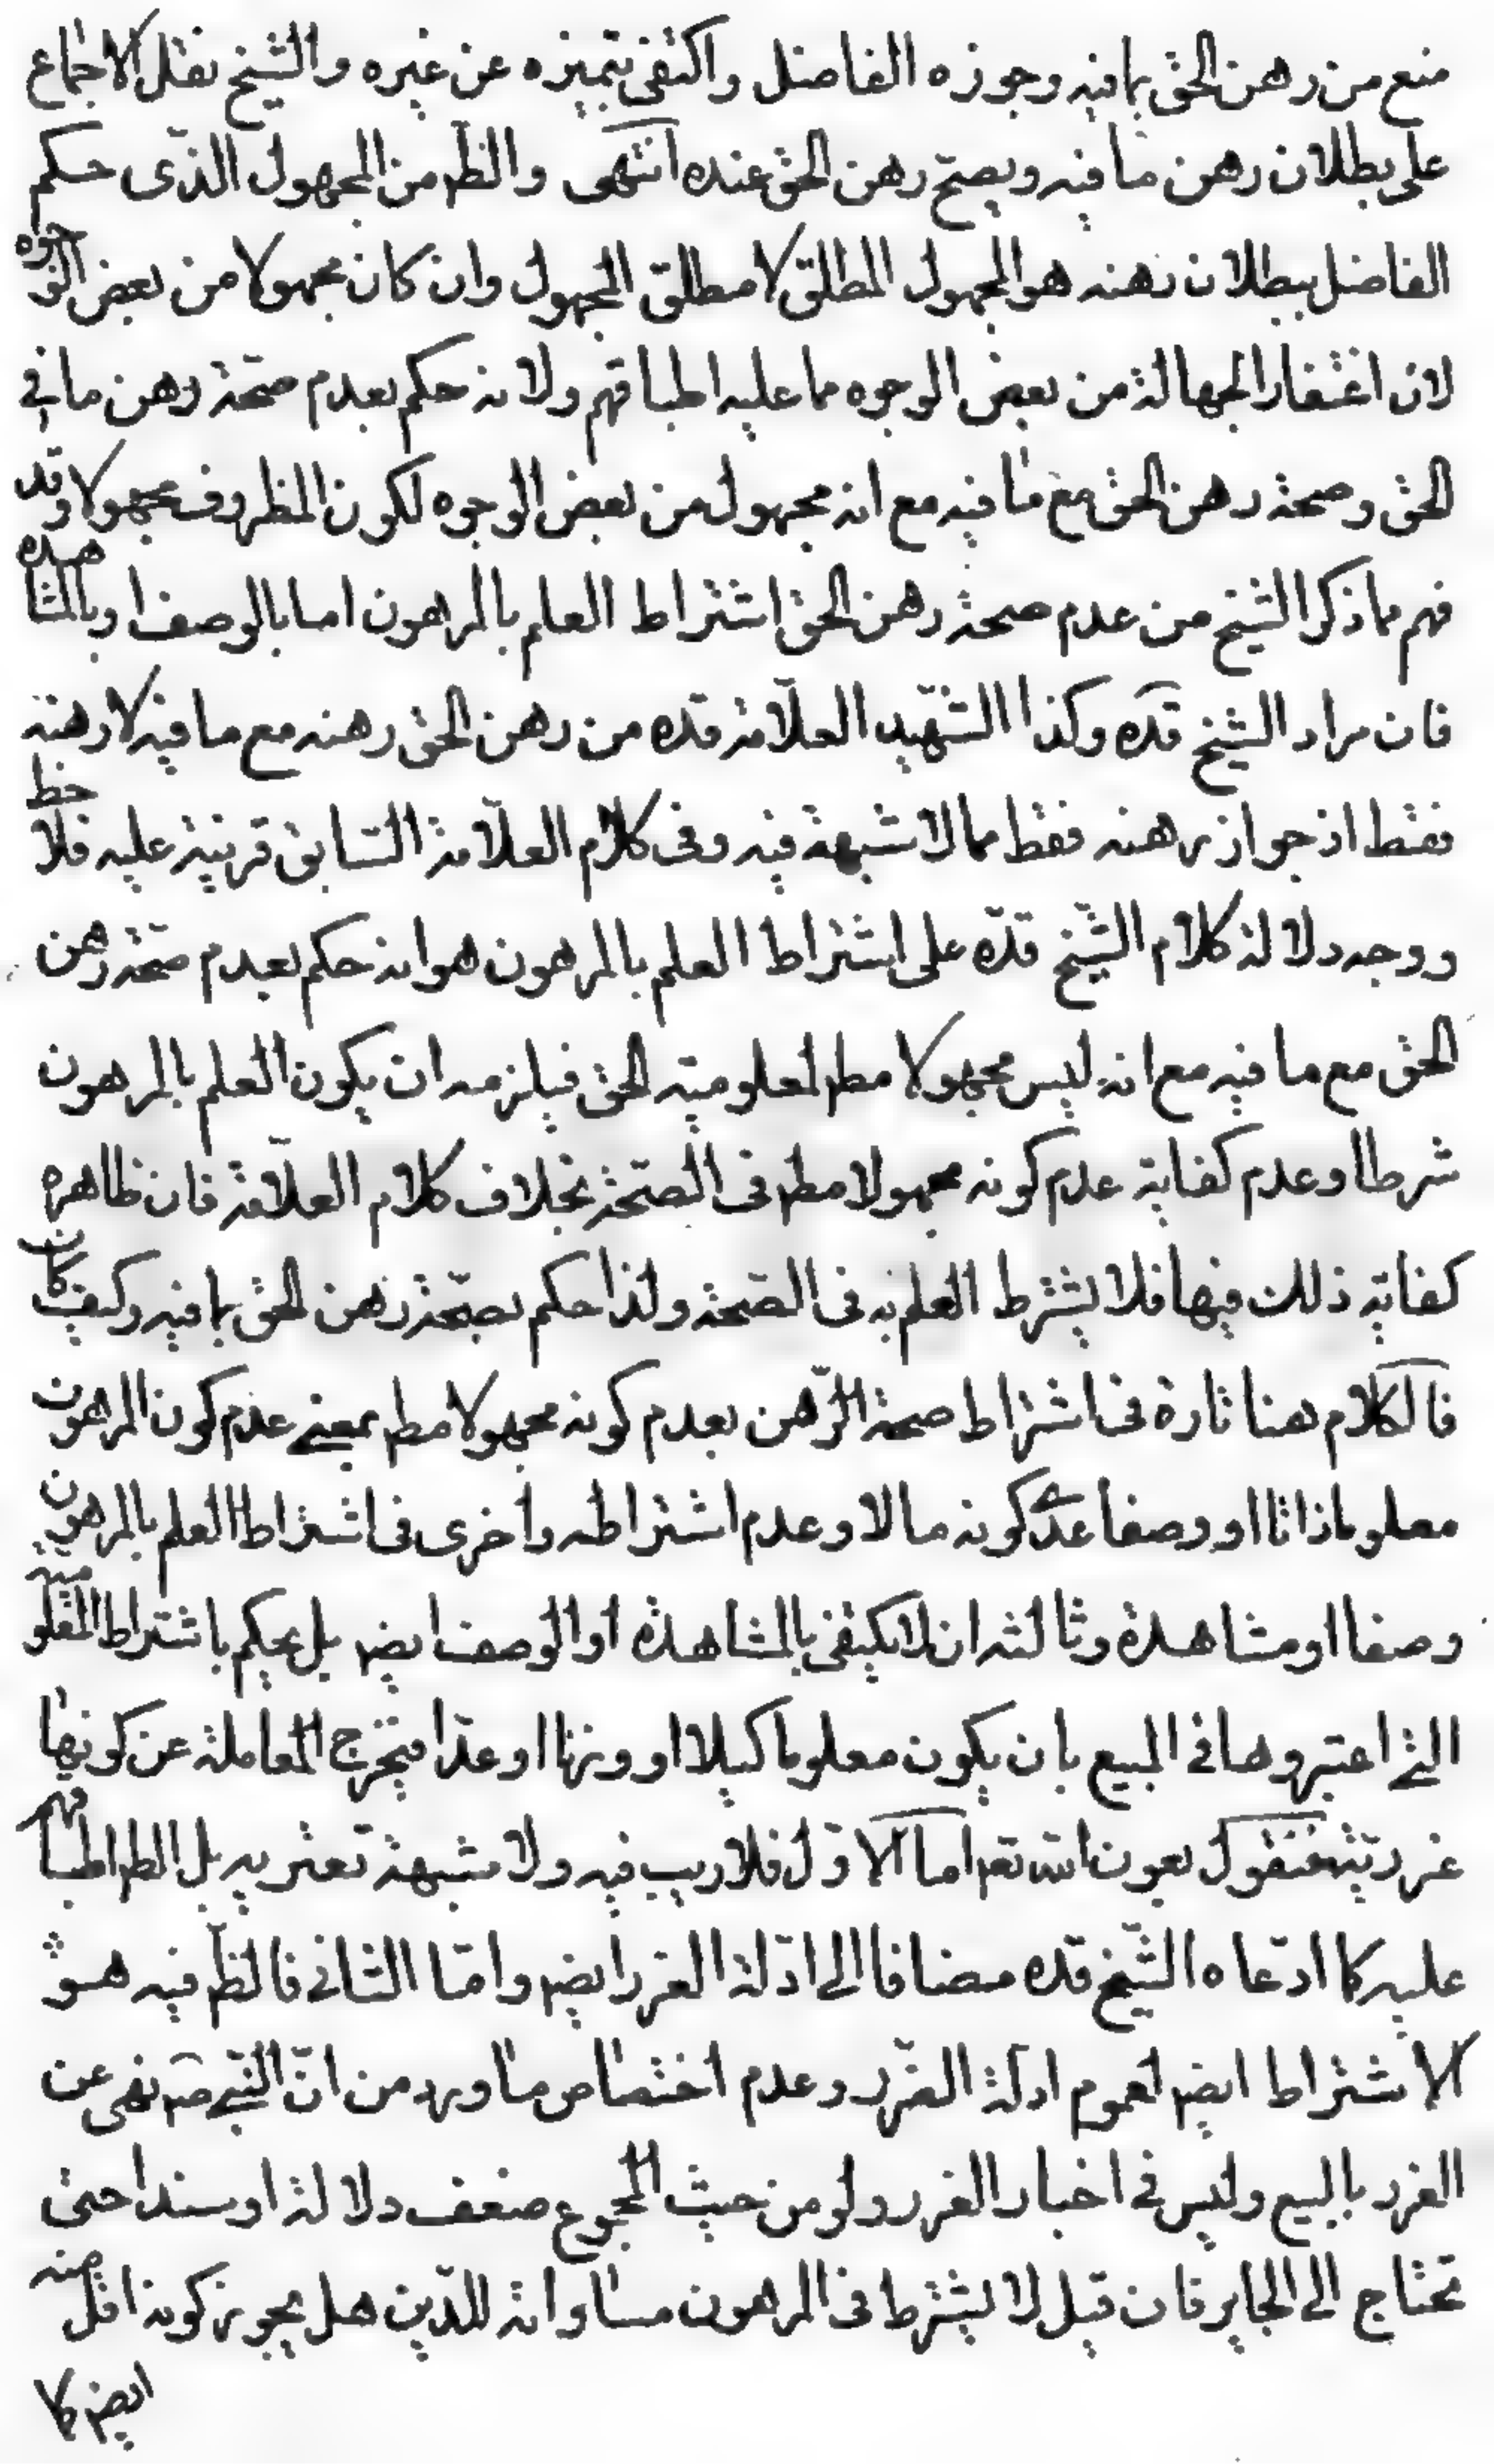 منع من رهن الحق بما فيه وجوزه الفاضل واكتفى بتميزه عن غيره والشيخ نقل الاجماع
على بطلان رهن ما فيه ويصح رهن الحق عنده انتهى والظ من المجهول الذى حكم
الفاضل ببطلان رهنه هو المجهول المطلق لا مطلق المجهول وان كان مجهولا من بعض الوجوه
لان اغتفار الجهالة من بعض الوجوه مما عليه اطباقهم ولانه حكم بعدم صحة رهن ما في
الحق وصحة رهن الحق مع ما فيه مع انه مجهول من بعض الوجوه لكون المظروف مجهولا وقد
فهم مما ذكر الشيخ من عدم صحة رهن الحق اشتراط العلم بالمرهون اما بالوصف او بالمشاهدة
فان مراد الشيخ قده وكذا الشهيد العلامة قده من رهن الحق رهنه مع ما فيه لا رهنه
فقط اذ جواز رهنه فقط مما لا شبهة فيه وفى كلام العلامة السابق قرينة عليه فلاحظ
ووجه دلالة كلام الشيخ قده على اشتراط العلم بالمرهون هو انه حكم بعدم صحة رهن
الحق مع ما فيه مع انه ليس مجهولا مط لمعلومية الحق فيلزمه ان يكون العلم بالمرهون
شرطا وعدم كفاية عدم كونه مجهولا مط فى الصحة بخلاف كلام العلامة فان ظاهره
كفاية ذلك فيها فلا يشترط العلم به فى الصحة ولذا حكم بصحة رهن الحق بما فيه وكيف كان
فالكلام هنا تارة فى اشتراط صحة الرهن بعدم كونه مجهولا مط بمعنى عدم كون المرهون
معلوما ذاتا او وصفا عدا كونه مالا وعدم اشتراطه واخرى فى اشتراط العلم بالمرهون
وصفا او مشاهدة وثالثه ان لا يكتفى بالمشاهدة او الوصف ايض بل يحكم باشتراط المعلومية
التى اعتبروها فى المبيع بان يكون معلوما كيلا او وزنا او عدا فيخرج المعاملة عن كونها
غررية فنقول بعون الله تعه اما الاول فلا ريب فيه ولا شبهة تعتريه بل الظ اطباقهم
عليه كما ادعاه الشيخ قده مضافا الى ادلة الغرر ايض واما الثانى فالظ فيه هو
الاشتراط ايض لعموم ادلة الغرر وعدم اختصاص ما ورد من ان النبى صه نهى عن
الغرر بالبيع وليس فى اخبار الغرر ولو من حيث المجموع ضعف دلالة او سندا حتى
تحتاج الى الجابر فان قيل لا يشترط فى المرهون مساواته للدين هل يجوز كونه اقل منه
ايض كما